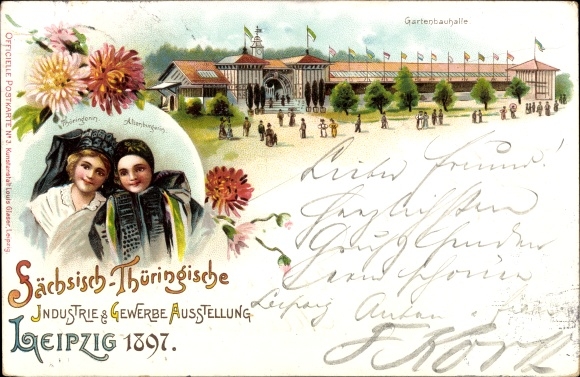 Gartenbauhalle.
Officielle Postkarte No 2. Kunstanstalt Louis Glaser, Leipzig.
Thüringerin.
Altenburgerin.
Sächsisch-Thüringische
Industrie & Gewerbe Ausstellung
Leipzig 1897.
Lieber Freund!
Herzlichsten
Gruß
Leipzig